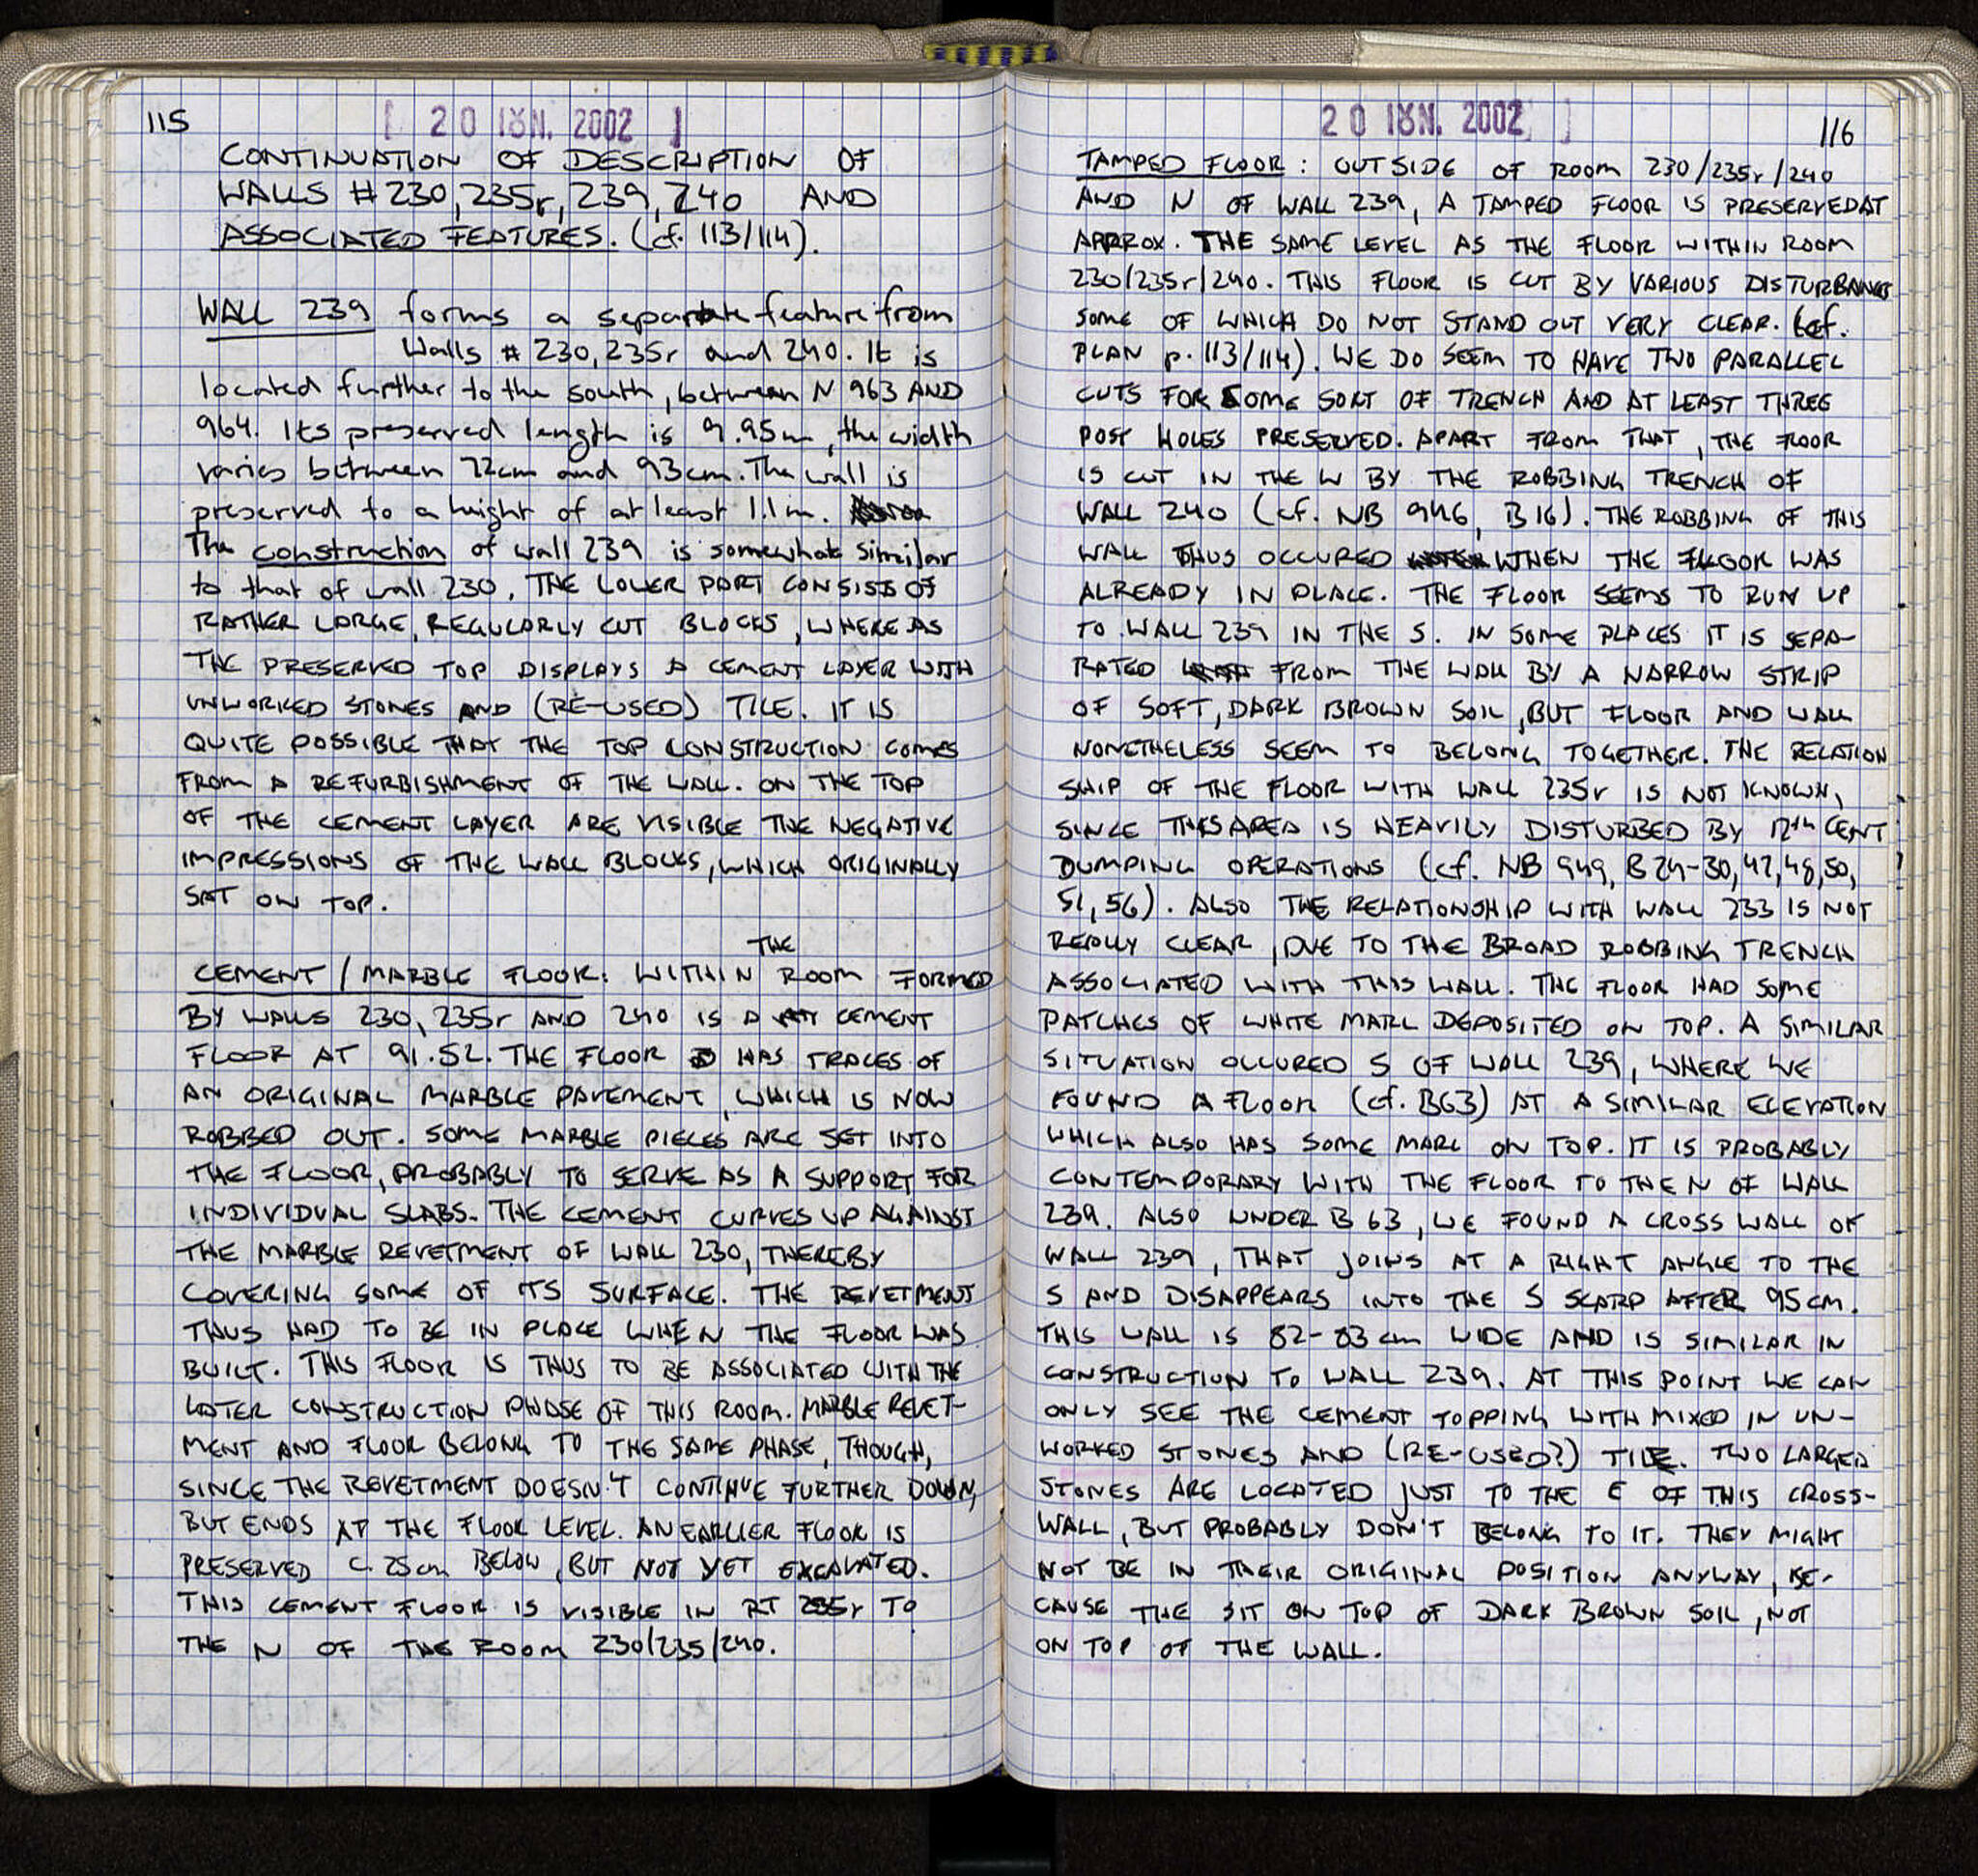 115
[ 20 ΙΟΥΝ. 2002 ]
CONTINUATION OF DESCRIPTION OF
WALLS #230, 235r, 239, 240 AND
ASSOCIATED FEATURES. (cf. 113/114).
WALL 239 forms a separate feature from
Walls # 230, 235r and 240. It is
located further to the south, between N 963 AND
964. Its preserved length is 9.95m, the width
varies between 72cm and 93cm. The wall is
preserved to a height of at least 1.1m.
The construction of wall 239 is somewhat similar
to that of wall 230. THE LOWER PART CONSISTS OF
RATHER LARGE, REGULARLY CUT BLOCKS, WHEREAS
THE PRESERVED TOP DISPLAYS A CEMENT LAYER WITH
UNWORKED STONES AND (RE-USED) TILE. IT IS
QUITE POSSIBLE THAT THE TOP CONSTRUCTION COMES
FROM A REFURBISHMENT OF THE WALL. ON THE TOP
OF THE CEMENT LAYER ARE VISIBLE THE NEGATIVE
IMPRESSIONS OF THE WALL BLOCKS, WHICH ORIGINALLY
SAT ON TOP.
CEMENT / MARBLE FLOOR: WITHIN THE ROOM FORMED
BY WALLS 230, 235r AND 240 IS A CEMENT
FLOOR AT 91.52. THE FLOOR HAS TRACES OF
AN ORIGINAL MARBLE PAVEMENT, WHICH IS NOW
ROBBED OUT. SOME MARBLE PIECES ARE SET INTO
THE FLOOR, PROBABLY TO SERVE AS A SUPPORT FOR
INDIVIDUAL SLABS. THE CEMENT CURVES UP AGAINST
THE MARBLE REVETMENT OF WALL 230, THEREBY
COVERING SOME OF ITS SURFACE. THE REVETMENT
THUS HAD TO BE IN PLACE WHEN THE FLOOR WAS
BUILT. THIS FLOOR IS THUS TO BE ASSOCIATED WITH THE
LATER CONSTRUCTION PHASE OF THIS ROOM. MARBLE REVET-
MENT AND FLOOR BELONG TO THE SAME PHASE, THOUGH,
SINCE THE REVETMENT DOESN'T CONTINUE FURTHER DOWN,
BUT ENDS AT THE FLOOR LEVEL. AN EARLIER FLOOR IS
PRESERVED C. 25cm BELOW, BUT NOT YET EXCAVATED.
THIS CEMENT FLOOR IS VISIBLE IN RT 235r TO
THE N OF THE ROOM 230/235/240.
20 ΙΟΥΝ. 2002 ]
116
TAMPED FLOOR: OUTSIDE OF ROOM 230/235r/240
AND N OF WALL 239, A TAMPED FLOOR IS PRESERVED AT
APPROX. THE SAME LEVEL AS THE FLOOR WITHIN ROOM
230/235r/240. THIS FLOOR IS CUT BY VARIOUS DISTURBANCES
SOME OF WHICH DO NOT STAND OUT VERY CLEAR. (cf.
PLAN p. 113/114). WE DO SEEM TO HAVE TWO PARALLEL
CUTS FOR SOME SORT OF TRENCH AND AT LEAST THREE
POST HOLES PRESERVED. APART FROM THAT, THE FLOOR
IS CUT IN THE W BY THE ROBBING TRENCH OF
WALL 240 (cf. NB 946, B16). THE ROBBING OF THIS
WALL THUS OCCURED WHEN THE FLOOR WAS
ALREADY IN PLACE. THE FLOOR SEEMS TO RUN UP
TO WALL 239 IN THE S. IN SOME PLACES IT IS SEPA-
RATED FROM THE WALL BY A NARROW STRIP
OF SOFT, DARK BROWN SOIL, BUT FLOOR AND WALL
NONETHELESS SEEM TO BELONG TOGETHER. THE RELATION
SHIP OF THE FLOOR WITH WALL 235r IS NOT KNOWN,
SINCE THIS AREA IS HEAVILY DISTURBED BY 12th CENT
DUMPING OPERATIONS (cf. NB 949, B 29-30, 42, 48, 50,
51, 56). ALSO THE RELATIONSHIP WITH WALL 233 IS NOT
REALLY CLEAR, DUE TO THE BROAD ROBBING TRENCH
ASSOCIATED WITH THIS WALL. THE FLOOR HAD SOME
PATCHES OF WHITE MARL DEPOSITED ON TOP. A SIMILAR
SITUATION OCCURED S OF WALL 239, WHERE WE
FOUND A FLOOR (cf. B63) AT A SIMILAR ELEVATION
WHICH ALSO HAS SOME MARL ON TOP. IT IS PROBABLY
CONTEMPORARY WITH THE FLOOR TO THE N OF WALL
239. ALSO UNDER B 63, WE FOUND A CROSS WALL OF
WALL 239, THAT JOINS AT A RIGHT ANGLE TO THE
S AND DISAPPEARS INTO THE S SCARP AFTER 95cm.
THIS WALL IS 82-83 cm WIDE AND IS SIMILAR IN
CONSTRUCTION TO WALL 239. AT THIS POINT WE CAN
ONLY SEE THE CEMENT TOPPING WITH MIXED IN UN-
WORKED STONES AND (RE-USED?) TILE. TWO LARGER
STONES ARE LOCATED JUST TO THE E OF THIS CROSS-
WALL, BUT PROBABLY DON'T BELONG TO IT. THEY MIGHT
NOT BE IN THEIR ORIGINAL POSITION ANYWAY, BE-
CAUSE THE SIT ON TOP OF DARK BROWN SOIL, NOT
ON TOP OF THE WALL.